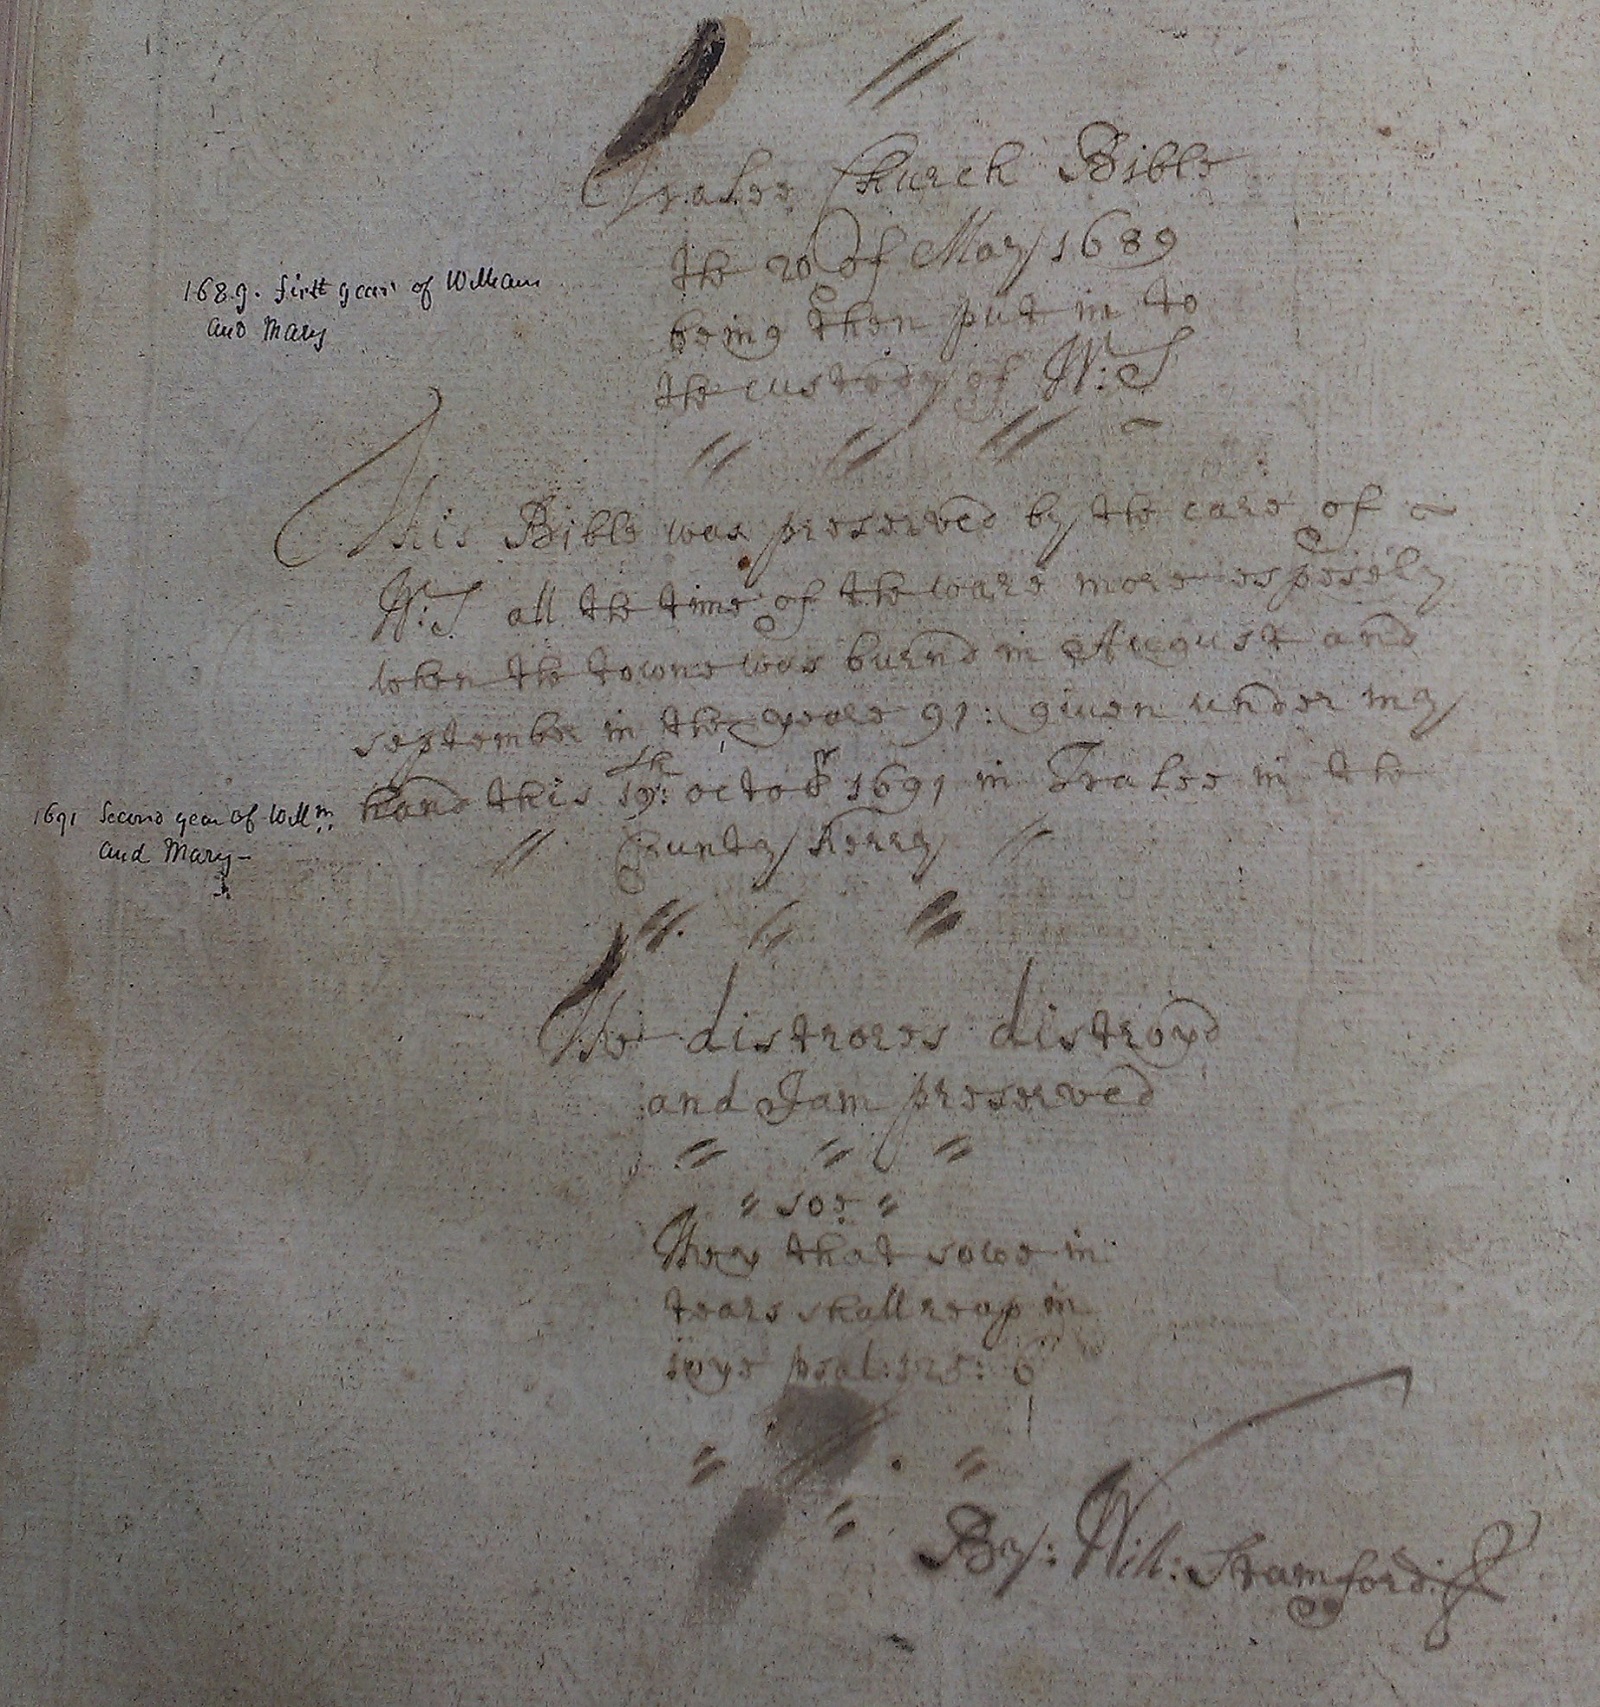 Tralee Church Bible
the 20 of May 1689
being then put in to
the custody of W:S
1689. first year of William
and Mary
This Bible was preserved by the care of
W:S all the time of the ware more espesely
when the towne was burnd in August and
september in the yeare 91: given under my
hand this 19th: octobr 1691 in Tralee in the
County Kerry
1691 Second year of Willm
and Mary -
The distrores distroyd
and I am preserved
soe
They that sowe in
tears shall reap in
ioye psal: 125: 6
By: Wil: Stamford: